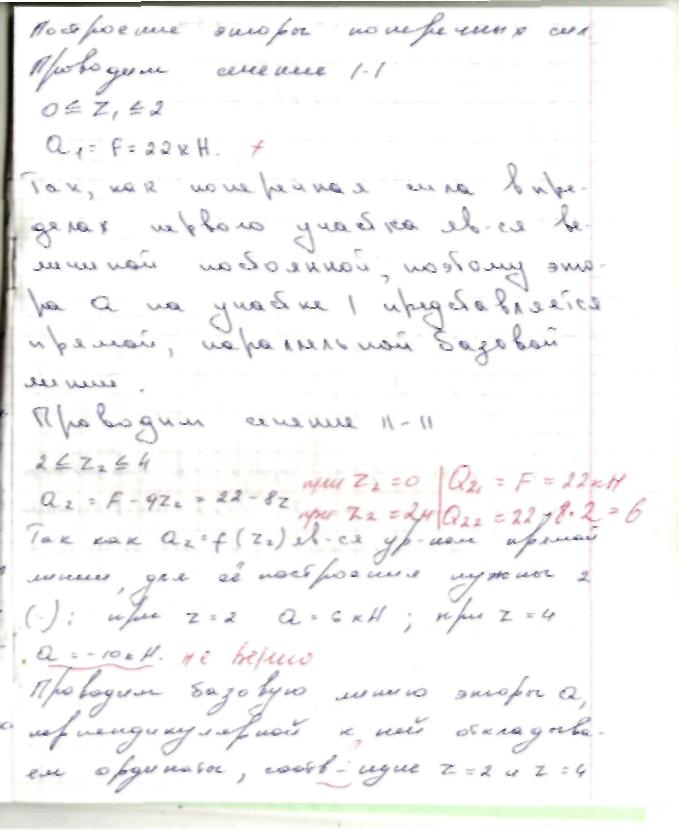 Построение эпюры поперечных сил
Проводим сечение I-I
0 ≤ Z₁ ≤ 2
Q₁ = F = 22 кН. +
Так, как поперечная сила в пре-
делах первого участка яв-ся ве-
личиной постоянной, поэтому эпю-
ра Q на участке I представляется
прямой, параллельной базовой
линии.
Проводим сечение II-II
2 ≤ Z₂ ≤ 4
при Z₂ = 0 | Q₂₁ = F = 22 кН
Q₂ = F - qZ₂ = 22 - 8z
при Z₂ = 2м Q₂₂ = 22 - 8·2 = 6
Так как Q₂ = f(Z₂) яв-ся ур-ем прямой
линии, для её построения нужны 2
(·): при Z = 2 Q = 6 кН; при Z = 4
Q = -10 кН. не верно
Проводим базовую линию эпюры Q,
перпендикулярной к ней откладыва-
ем ординаты, соотв-щие Z = 2 и Z = 4